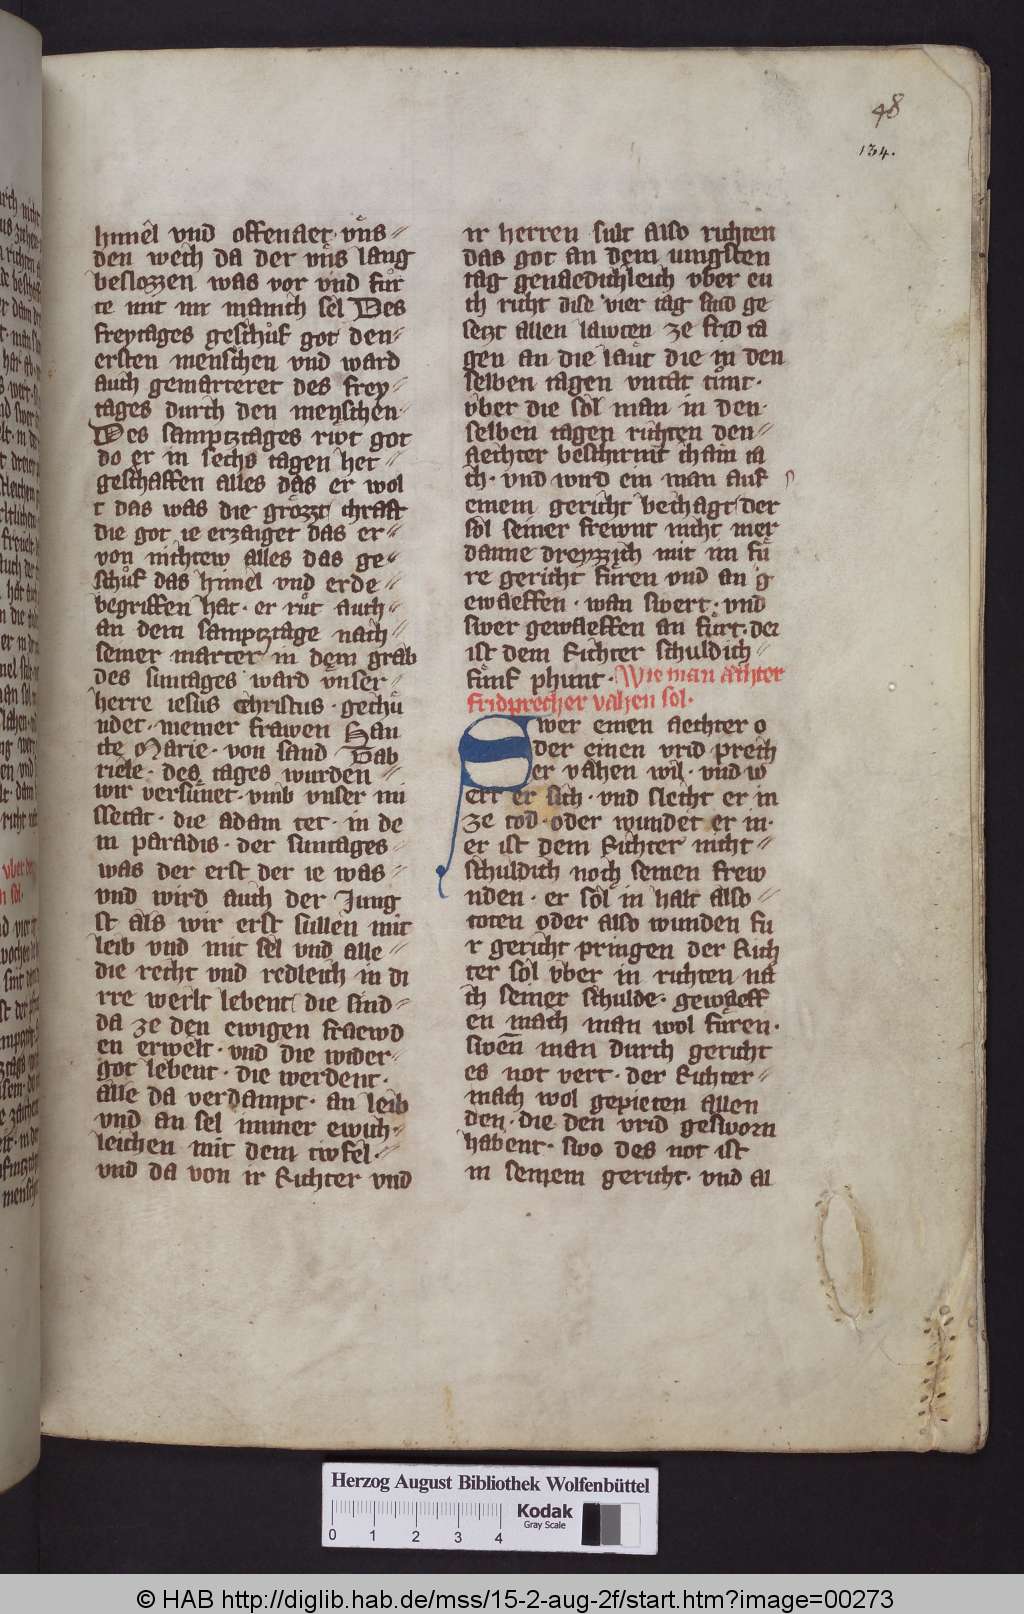 48
134.
himel vnd offenaet vͤns
den wech da der vͤns lang
beslozzen was vor vnd fuͤr
te mit im manich sel Des
freytages geschuͤf got den
ersten menschen vnd ward
auch gemarteret des frey
tages durch den menschen·
Des sampztages rwt got
do er in sechs tagen het
geschaffen alles das er wol
t das was die grozzt chraft
die got ie erzaiget das er
von nichtew alles das ge
schuͤf das himel vnd erde
begriffen hat· er ruͤt auch
an dem sampztage nach
seiner marter in dem grab
des suntages ward vnser
herre iesus Christus gechuͤ
ndet· meiner frawen San
cte Marie· von sand Gab
riele· des tages wurden
wir versuͤnet· vmb vnser mi
ssetat· die adam tet· in de
m paradis· der suntages
was der erst der ie was
vnd wird auch der Jung
st als wir erst sullen mit
leib vnd mit sel vnd alle
die recht vnd redleich in di
rre werlt lebent die sind
da ze den ewigen fraewd
en erwelt· vnd die wider
got lebent· die werdent·
alle da verdampt· an leib
vnd an sel immer ewich
leichen mit dem tiwfel·
vnd da von ir Richter vnd
ir herren sult also richten
das got an dem iungsten
tag genaedichleich vber eu
ch richt dise vier tag sind ge
setzt allen lawten ze frid ta
gen an die laͤut die in den
selben tagen vntat tuͤnt·
vber die sol man in den
selben tagen richten den
aechter beschirmt chain ta
ch· vnd wird ein man auf
einem gericht bechagt der
sol seiner frewnt nicht mer
danne dreyzzich mit im fuͤ
re gericht fuͤren vnd an g
ewaeffen· wan swert· vnd
swer gewaeffen an fuͤrt· der
ist dem Richter schuldich
fuͤnf phunt· Wie man aechter
fridprecher vahen sol·
Swer einen aechter o
der einen vrid prech
er vahen wil· vnd w
ert er sich· vnd slecht er in
ze tod· oder wundet er in·
er ist dem Richter nicht
schuldich noch seinen frew
nden· er sol in halt also
toten oder also wunden fu
r gericht pringen der Rich
ter sol vber in richten na
ch seiner schulde· gewaeff
en mach man wol fuͤren·
swen man durch gericht
es not vert· der Richter
mach wol gepieten allen
den· die den vrid gesworn
habent· swo des not ist
in seinem gericht· vnd al
Herzog August Bibliothek Wolfenbüttel
Kodak
Gray Scale
0 1 2 3 4
© HAB http://diglib.hab.de/mss/15-2-aug-2f/start.htm?image=00273